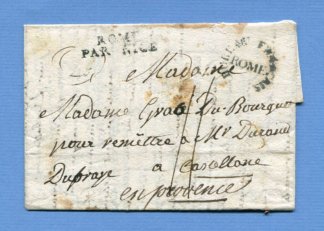 ROME
PAR NICE
BUREAU FRANCAIS
ROME
Madame
Madame Gras Du-Bourguet
pour remettre a Mr Durand
Dufraye
a Castellane
en provence